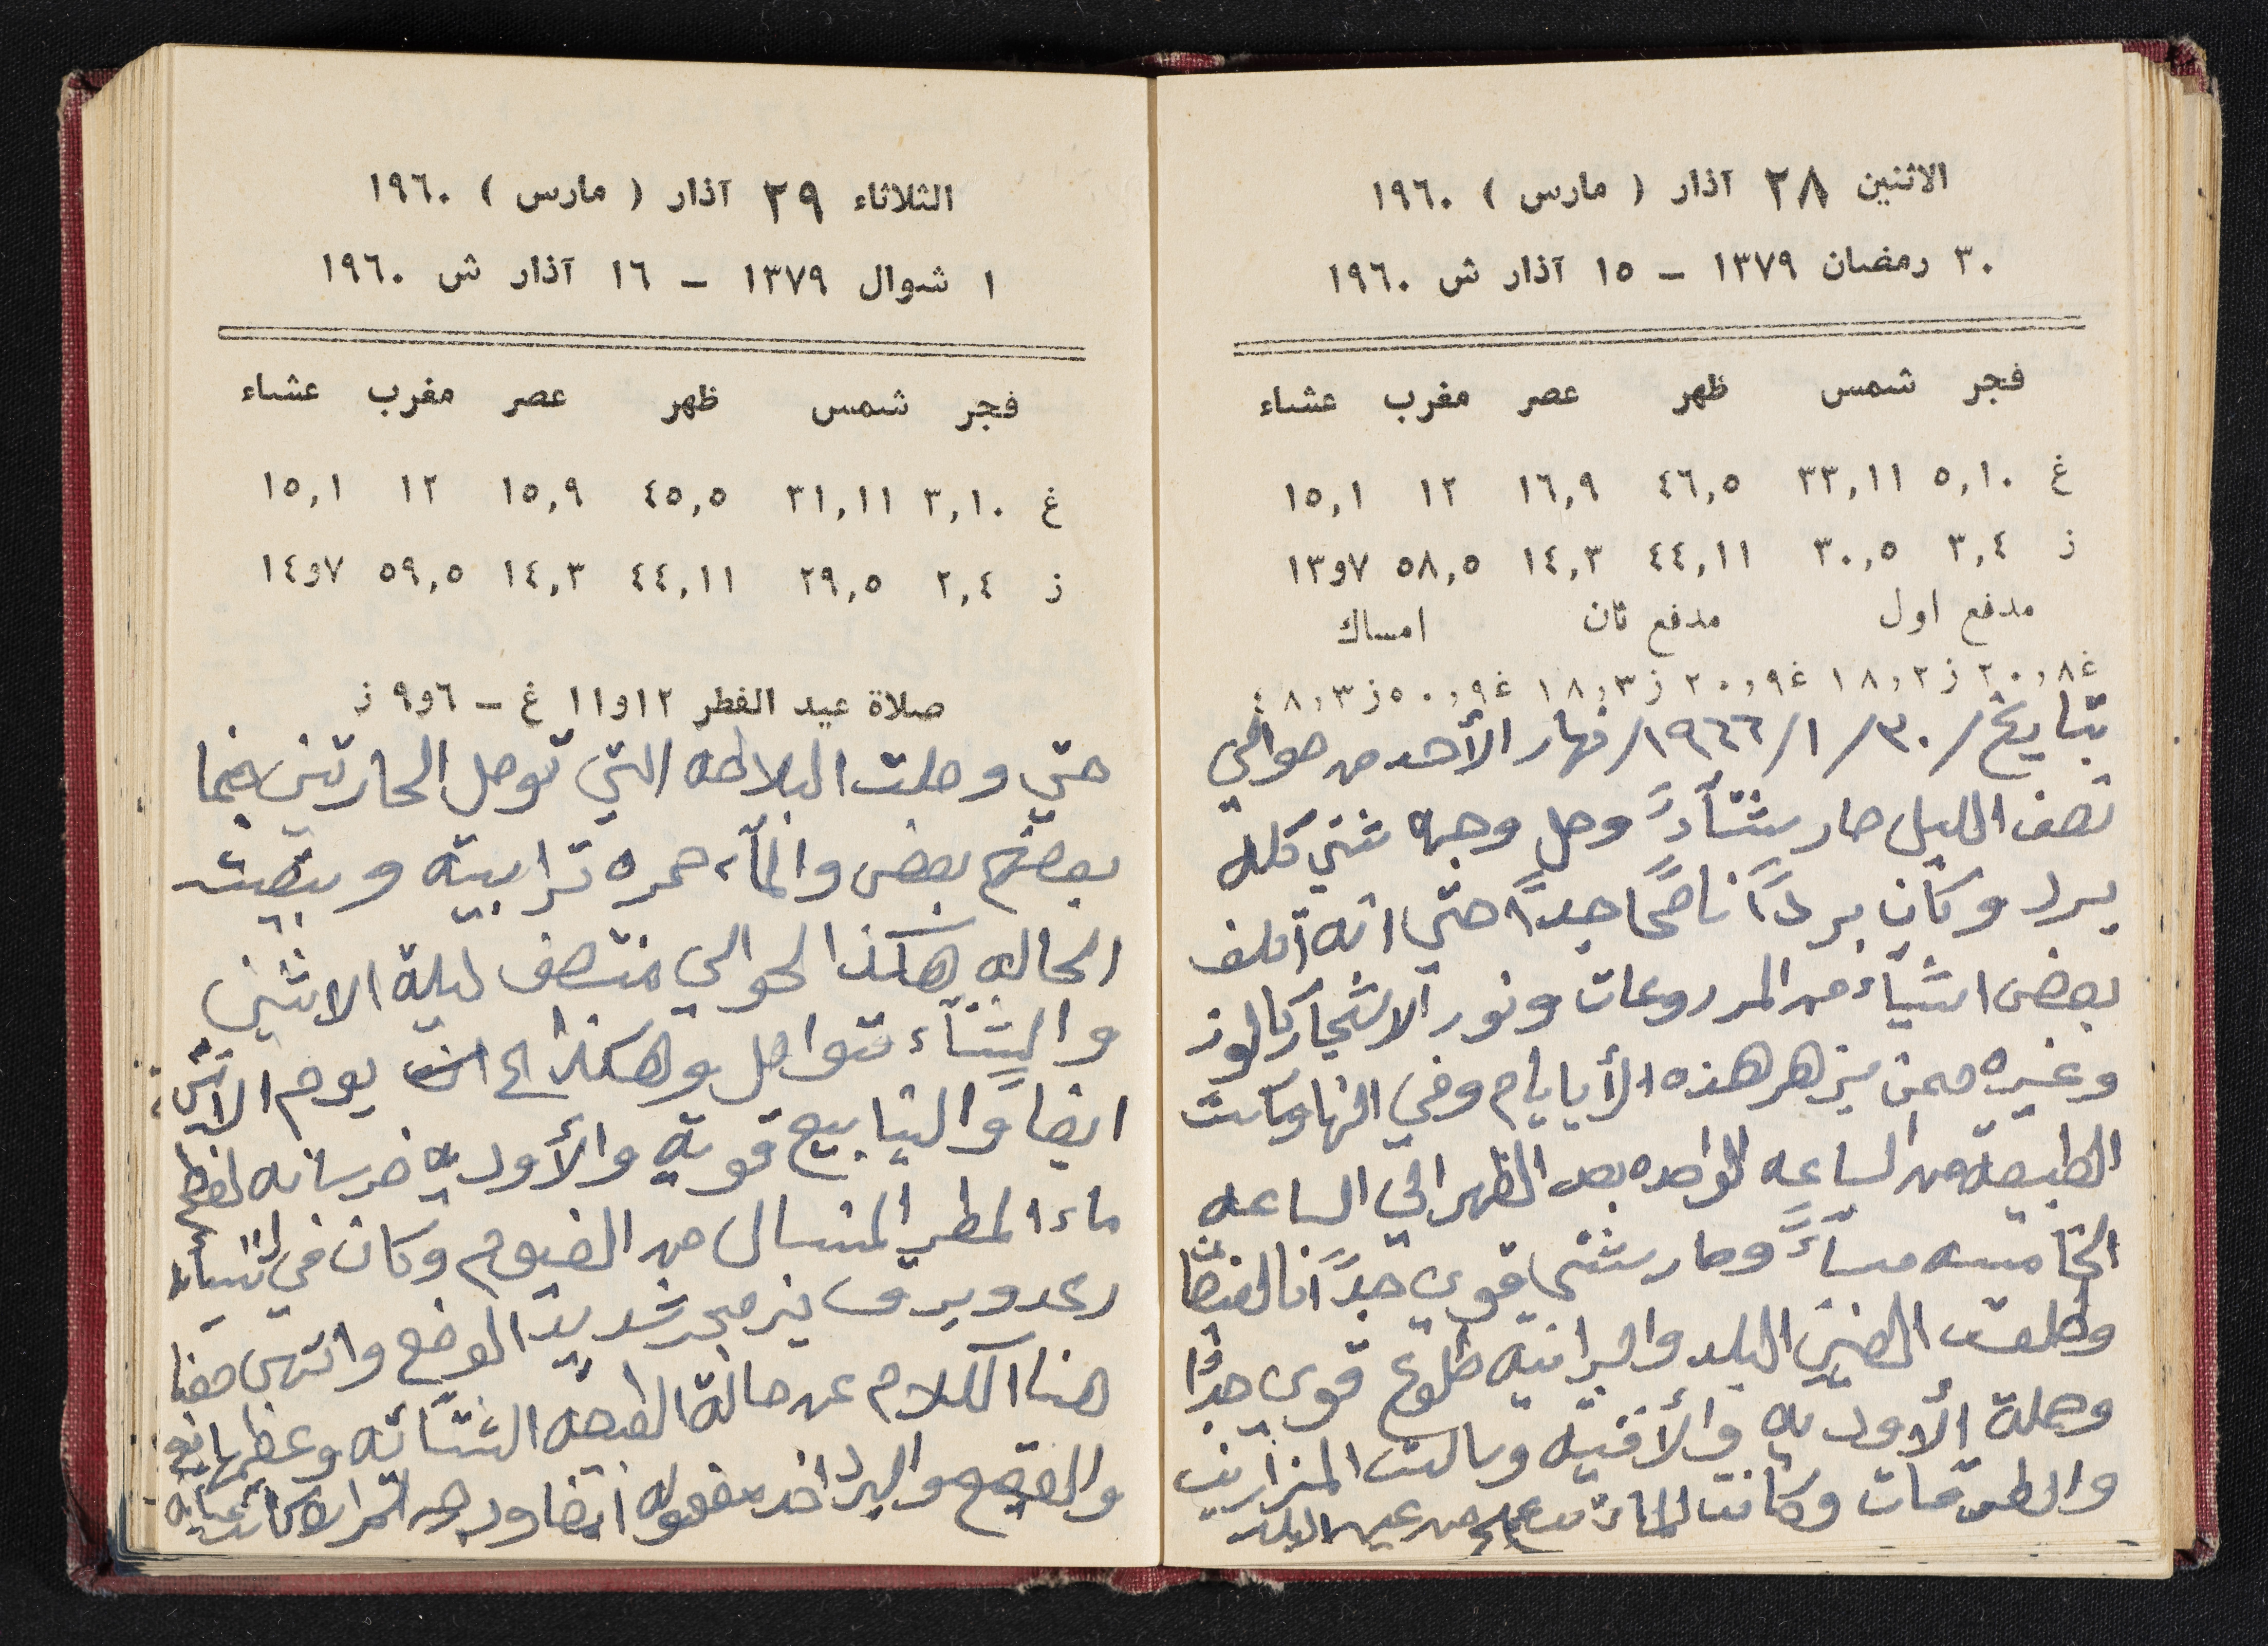 الاثنين ٢٨ آذار ( مارس ) ١٩٦٠
٣٠ رمضان ١٣٧٩ – ١٥ آذار ش ١٩٦٠
فجر شمس ظهر عصر مغرب عشاء
غ ٥,١٠ ٣٣,١١ ٤٦,٥ ١٦,٩ ١٢ ١٥,١
ز ٣,٤ ٣٠,٥ ٤٤,١١ ١٤,٣ ٥٨,٥ ١٣و٧
مدفع اول مدفع ثان امساك
غ ٢٠,٨ ز ١٨,٢ غ ٢٠,٩ ز ١٨,٣ غ ٥٠,٩ ز ٤٨,٣
بتاريخ /٣٠/ ١/ ١٩٦٦/ نهار الأحد من حوالي
نصف الليل صار شتآءً وحل وجه شتي كله
برد وكان بردًا ناصحًا جدًا حتى انه أتلف
بعض اشيآء من المزروعات ونور الاشجار كالوز
وغيره ممن يزهر هذه الأيايام وفي النهار كانت
الطبيعه من الساعه الواحده بعد الظهر الي الساعه
الخامسه مسآءً وصار شتي قوي جدًا
وطلعت العين البلد والبرانيه طلوع قوي جدًا
وحملة الأوديه والأقنيه وسالت المزاريب
والطرقات وكانت من عين البلد
الثلاثاء ٢٩ آذار ( مارس ) ١٩٦٠
١ شوال ١٣٧٩ – ١٦ آذار ش ١٩٦٠
فجر شمس ظهر عصر مغرب عشاء
غ ٣,١٠ ٣١,١١ ٤٥,٥ ١٥,٩ ١٢ ١٥,١
ز ٢,٤ ٢٩,٥ ٤٤,١١ ١٤,٣ ٥٩,٥ ١٤و٧
صلاة عيد الفطر ١٢و١١ غ – ٦و٩ ز
حتي وصلت البلاطه التي توصل الحارتين
بعضهم بعض والمآء حمره ترابيه وبقيت
الحاله هكذا لحوالي منتصف ليلة الاثنين
والشتآء متواصل وهكذا يوم الاثنين
ايضا والينابيع قوية والأوديه
ماء المطر المنسال من الغيوم وكان في
رعد وبرق شديد الوقع وانتهى معنا
هنا الكلام عن حالة الشتآئه
والبرد اخد مفعوله ايضا